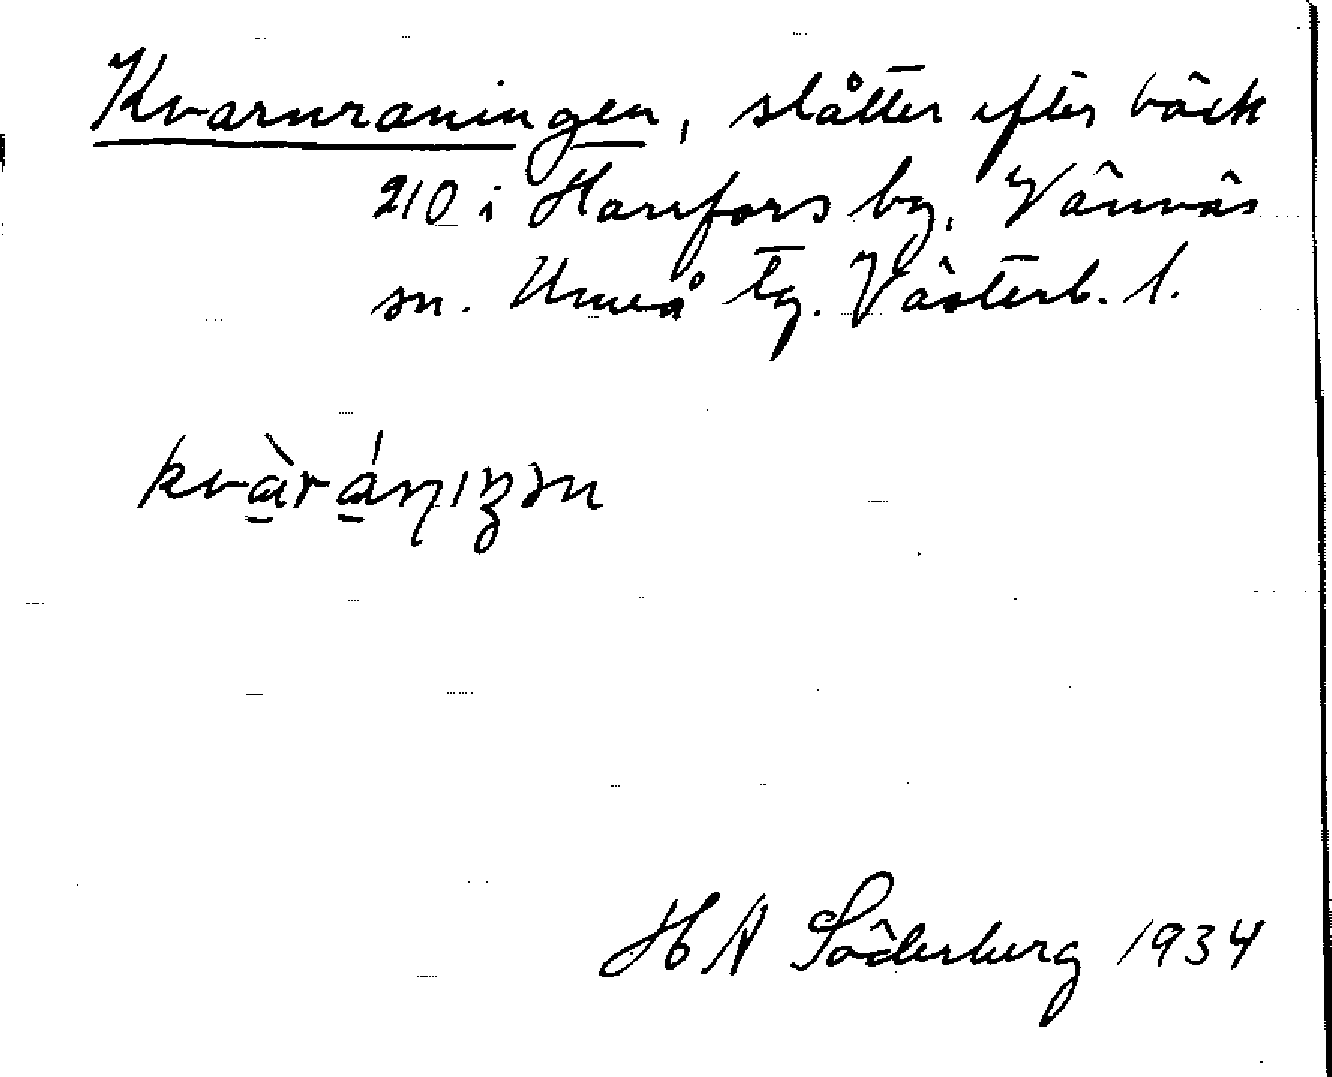 Kvarnraningen, slåtter efter bäck
210 i Harrfors by, Vännäs
sn. Umeå tg. Västerb. l.
H A Söderberg 1934